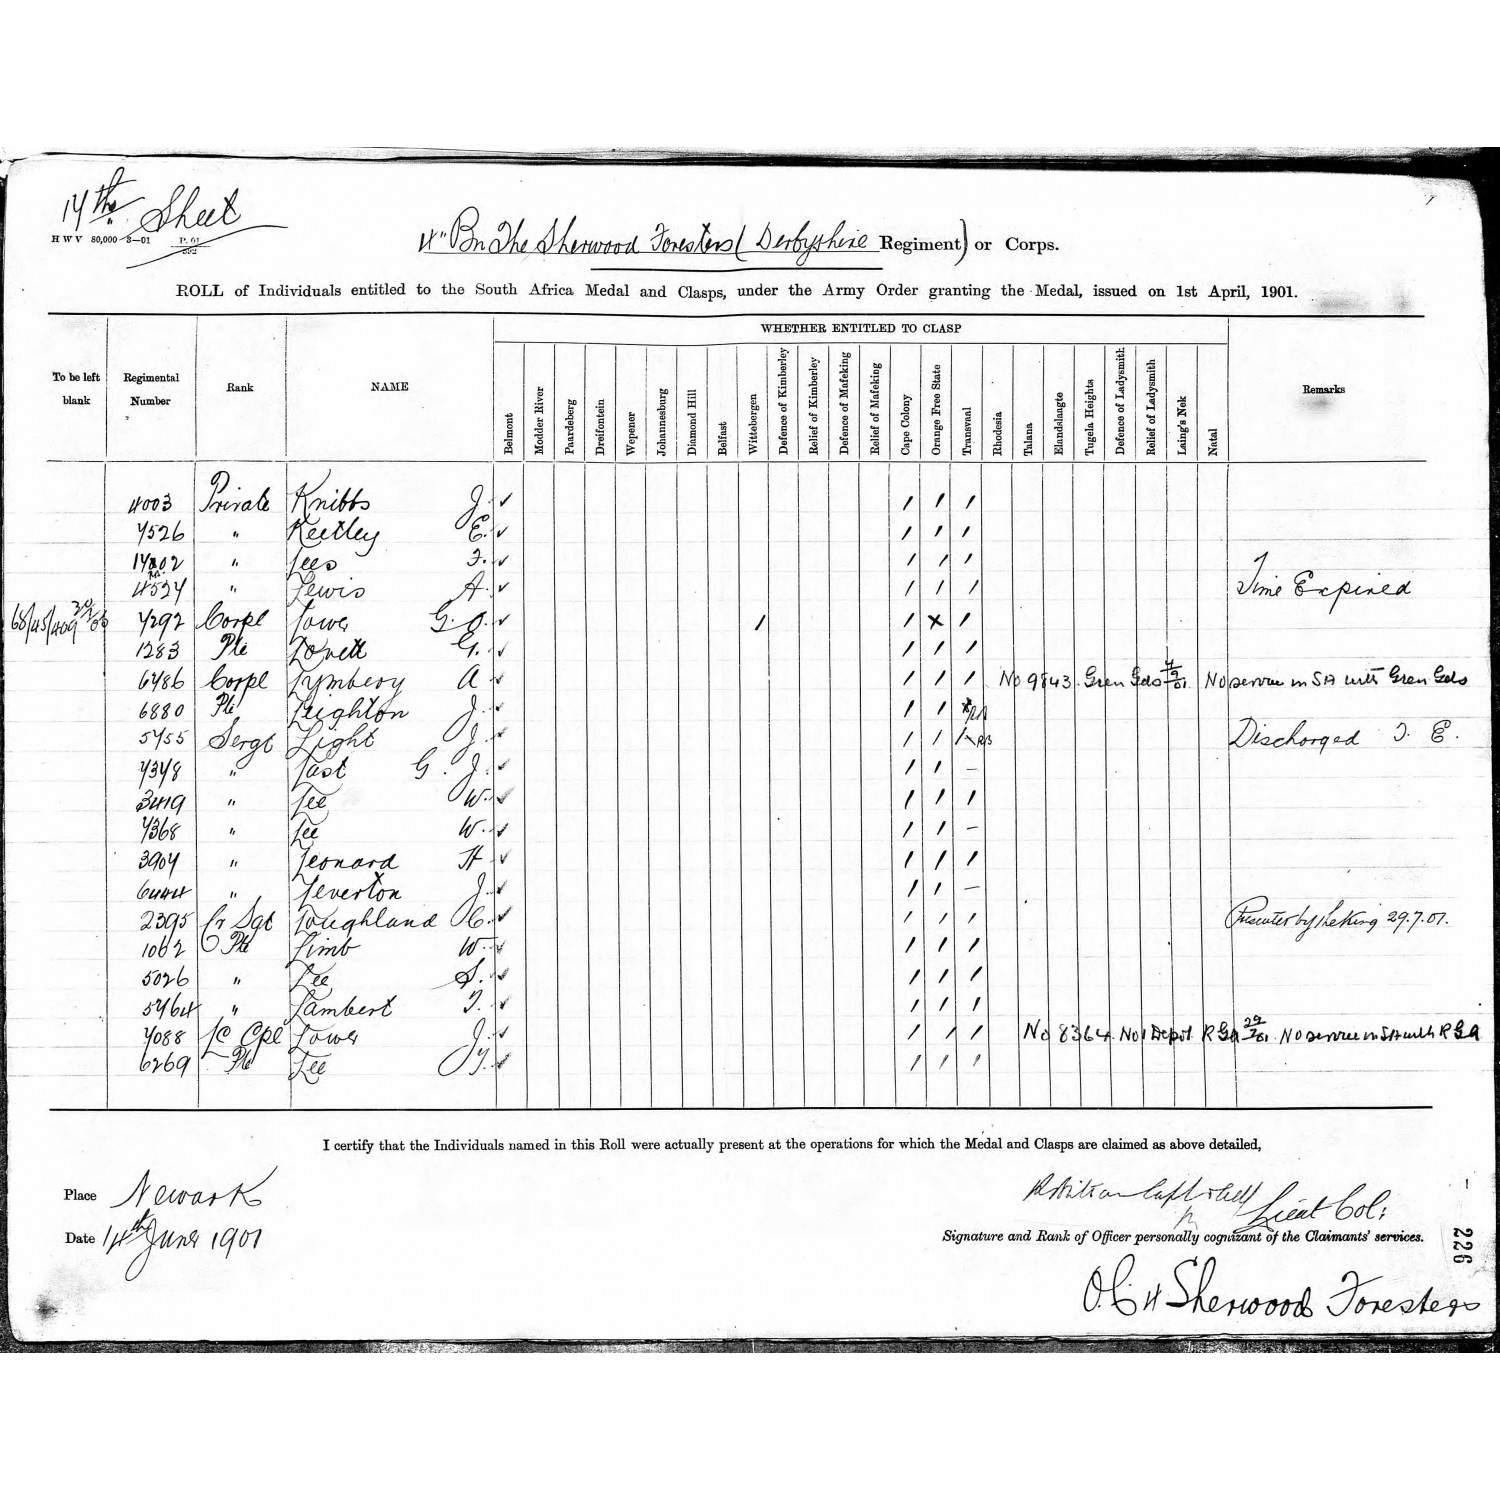 14th Sheet
H W V 80,000 3—01 P. 01
592
4" Bn The Sherwood Foresters (Derbyshire Regiment) or Corps.
ROLL of Individuals entitled to the South Africa Medal and Clasps, under the Army Order granting the Medal, issued on 1st April, 1901.
WHETHER ENTITLED TO CLASP
To be left blank
Regimental Number
Rank
NAME
Belmont
Modder River
Paardeberg
Dreifontein
Wepener
Johannesburg
Diamond Hill
Belfast
Wittebergen
Defence of Kimberley
Relief of Kimberley
Defence of Mafeking
Relief of Mafeking
Cape Colony
Orange Free State
Transvaal
Rhodesia
Talana
Elandslaagte
Tugela Heights
Defence of Ladysmith
Relief of Ladysmith
Laing's Nek
Natal
Remarks
4003 Private Knibbs J. ✓ / / /
7526 " Keetley E. ✓ / / /
" Lees J. ✓ / / /
" Lewis A. ✓ / / / Time Expired
7292 Corpl Lower G. O. ✓ / / x /
1283 Pte Lovett G. ✓ / / /
6786 Corpl Lymbery A ✓ / / / No 9843 Gren Gds No service in SA with Gren Gds
6880 Pte Leighton J. ✓ / / x
5755 Sergt Light J. ✓ / / / Discharged T. E.
7348 " Last G. J. ✓ / / –
3419 " Lee W. ✓ / / /
7368 " Lee W. ✓ / / –
3907 " Leonard H ✓ / / /
6444 " Leverton J. ✓ / / –
2395 Cr Sgt Loughland C. ✓ / / / Presented by the King 29.7.01.
1062 Pte Limb W. ✓ / / /
5026 " Lee S. ✓ / / /
5764 " Lambert T. ✓ / / /
7088 L/C Cpl Lower J. ✓ / / / No 8364 No 1 Depot R G A 29/7/01 No service in SA with R G A
6269 Pte Lee J. ✓ / / /
I certify that the Individuals named in this Roll were actually present at the operations for which the Medal and Clasps are claimed as above detailed,
Place Newark
Lieut Col:
Date 14th June 1901
Signature and Rank of Officer personally cognizant of the Claimants' services.
O. C. 4 Sherwood Foresters
226